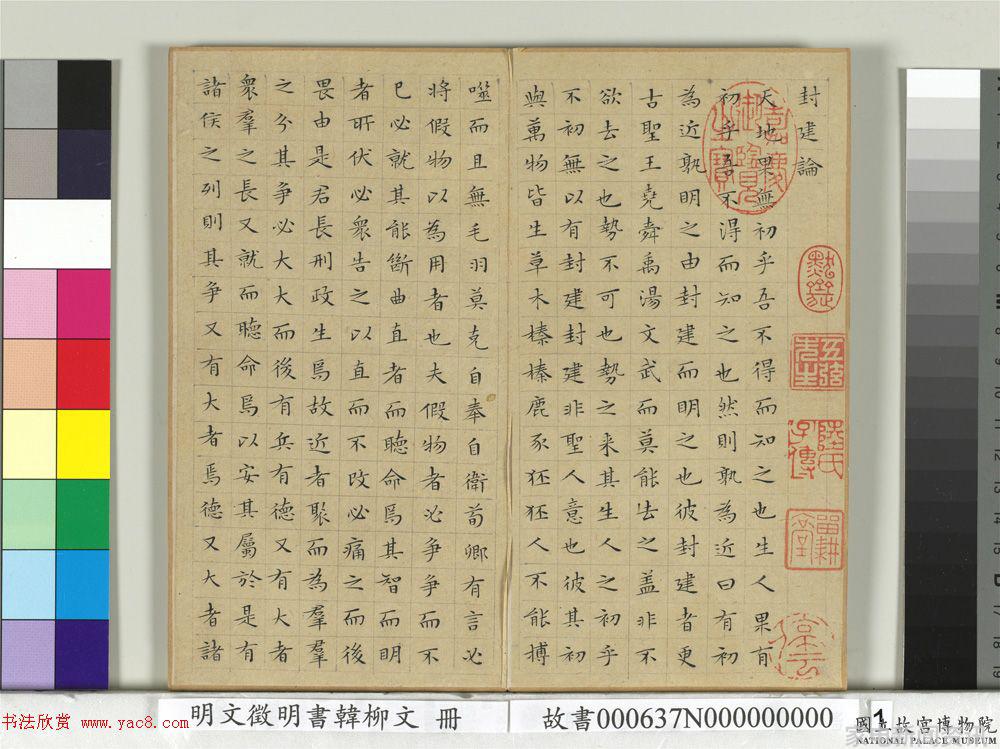 封建論
天地果無初乎吾不得而知之也生人果有
初乎吾不得而知之也然則孰為近曰有初
為近孰明之由封建而明之也彼封建者更
古聖王堯舜禹湯文武而莫能去之蓋非不
欲去之也勢不可也勢之来其生人之初乎
不初無以有封建封建非聖人意也彼其初
與萬物皆生草木榛榛鹿豕狉狉人不能搏
噬而且無毛羽莫克自奉自衛荀卿有言必
將假物以為用者也夫假物者必爭爭而不
已必就其能斷曲直者而聽命焉其智而明
者所伏必衆告之以直而不改必痛之而後
畏由是君長刑政生焉故近者聚而為羣羣
之分其爭必大大而後有兵有德又有大者
衆羣之長又就而聽命焉以安其屬於是有
諸侯之列則其爭又有大者焉德又大者諸
嘉慶御覽之寶
陸氏子傳
停雲
明文徵明書韓柳文 冊
故書000637N000000000
1
國立故宮博物院
NATIONAL PALACE MUSEUM
书法欣赏 www.yac8.com